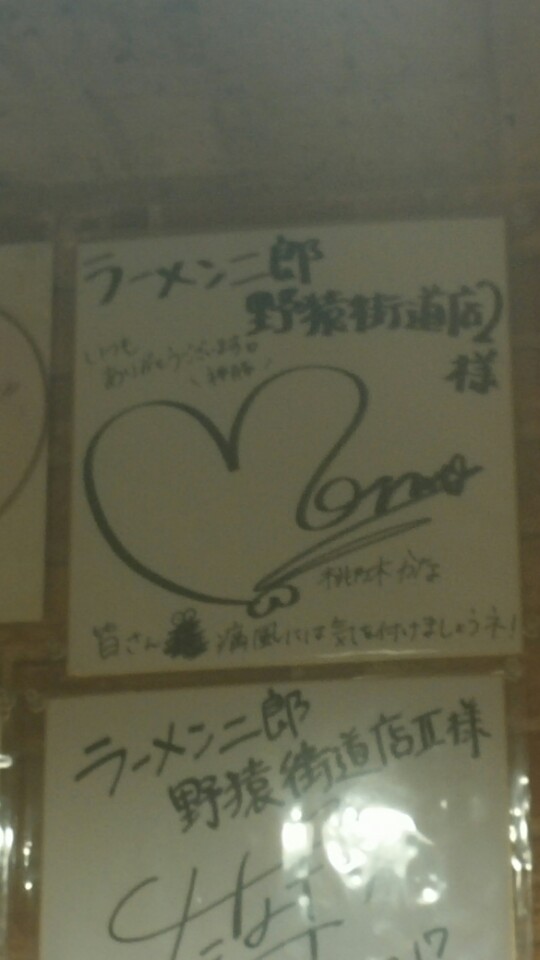 ラーメン二郎
野猿街道店2
様
いつも
ありがとうございます
皆さん 痛風には気を付けましょうネ!
ラーメン二郎
野猿街道店Ⅱ様
17